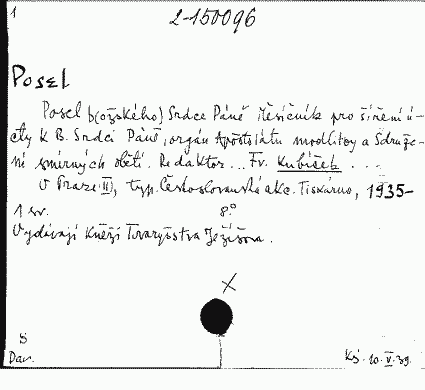 1
2-150096
Posel
Posel b(ožského) Srdce Páně Měsíčník pro šíření ú-
cty k B. Srdci Páně, orgán Apoštolátu modlitby a Sdruže-
ní smírných obětí. Redaktor... Fr. Kubíček ...
V Praze II, typ. Českoslovanská akc. Tiskárna, 1935-
1 sv. 8°
Vydávají Kněží Tovaryšstva Ježíšova.
X
S
Dar. Kś. 10. V. 39.